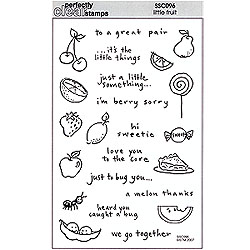 perfectly
clear stamps
SSC096
little fruit
to a great pair
...it's the
little things
just a little
something...
i'm berry sorry
hi
sweetie
love you
to the core
just to bug you...
a melon thanks
heard you
caught a bug
we go together
SSC096